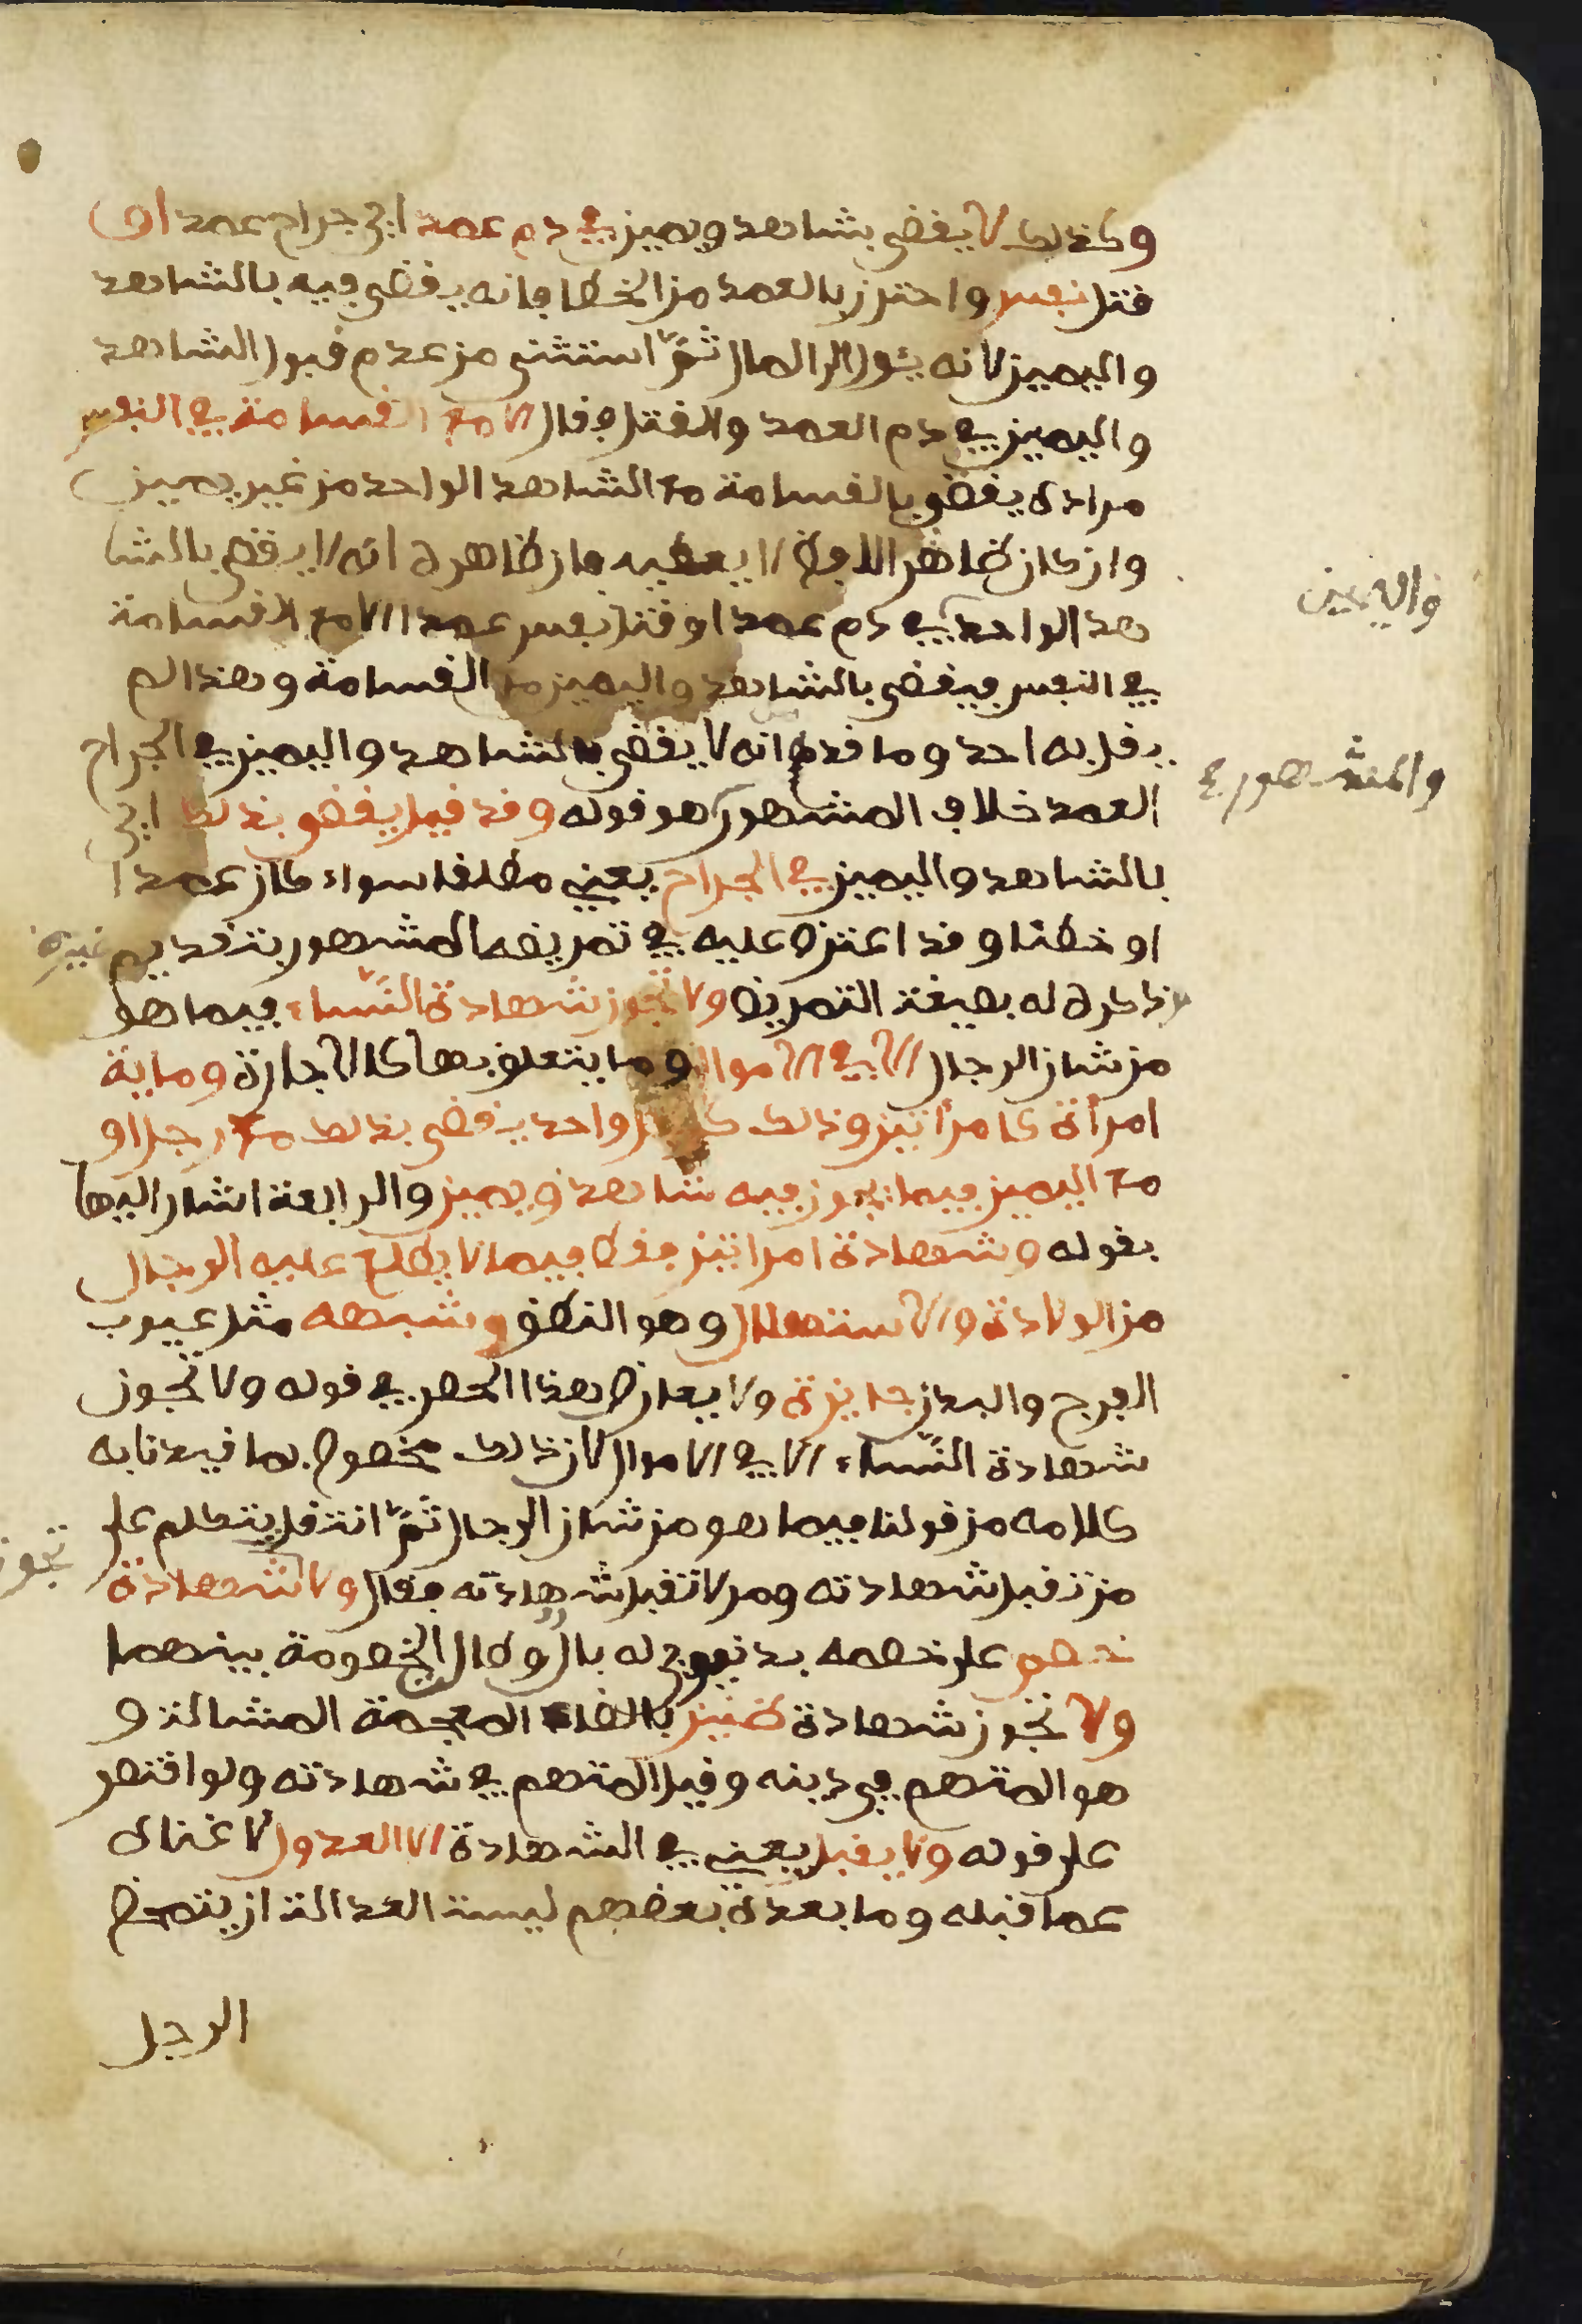 وكذلك لا يقضى بشاهد ويمين في دم عمد اي جراح عمد او
قتل نفس واحترز بالعمد من الخطا فانه يقضى فيه بالشاهد
واليمين لانه يئول الى المال ثمّ استثنى من عدم قبول الشاهد
واليمين في دم العمد والقتل فقال الا مع القسامة في النفس
مراده يقضى بالقسامة مع الشاهد الواحد من غير يمين
وان كان ظاهر اللفظ لا يعطيه فان ظاهره انه لا يقضى بالشا
هد الواحد في دم عمد او قتل نفس عمدا الا مع القسامة
واليمين
في النفس فيقضى بالشاهد واليمين مع القسامة وهذا لم
يقل به احد وما قدم انه لا يقضى بالشاهد واليمين في الجراح
والمشهور
العمد خلاف المشهور هو قوله وقد قيل يقضى بذلك اي
بالشاهد واليمين في الجراح يعني مطلقا سواء كان عمدا
او خطئا وقد اعترض عليه في تمريضه المشهور بتقديم غيره
وذكره له بصيغة التمريض ولا تجوز شهادة النّساء فيما هو
من شان الرجال الا في الاموال وما يتعلق بها كالاجارة وماية
امرأة كامرأتين وذلك كرجل واحد يقضى بذلك مع رجل او
مع اليمين فيما يجوز فيه شاهد ويمين والرابعة اشار اليها
بقوله وشهادة امراتين فقط فيما لا يطلع عليه الرجال
من الولادة والاستهلال وهو النطق وشبهه مثل عيوب
الفرج والبدن جايزة ولا يعارض هذا الحصر في قوله ولا تجوز
شهادة النّساء الا في الاموال لان ذلك مخصوص بما قيدنا به
كلامه من قولنا فيما هو من شان الرجال ثمّ انتقل يتكلم على
من تقبل شهادته ومن لا تقبل شهادته فقال ولا شهادة
تجوز
خصم على خصمه بدنيوي له بال وطال الخصومة بينهما
ولا تجوز شهادة ظنين بالظاء المعجمة المشالة و
هو المتهم في دينه وقيل المتهم في شهادته ولو اقتصر
على قوله ولا يقبل يعني في الشهادة الا العدول لاغناه
عما قبله وما بعده بعضهم ليست العدالة ان يتمحض
الرجل